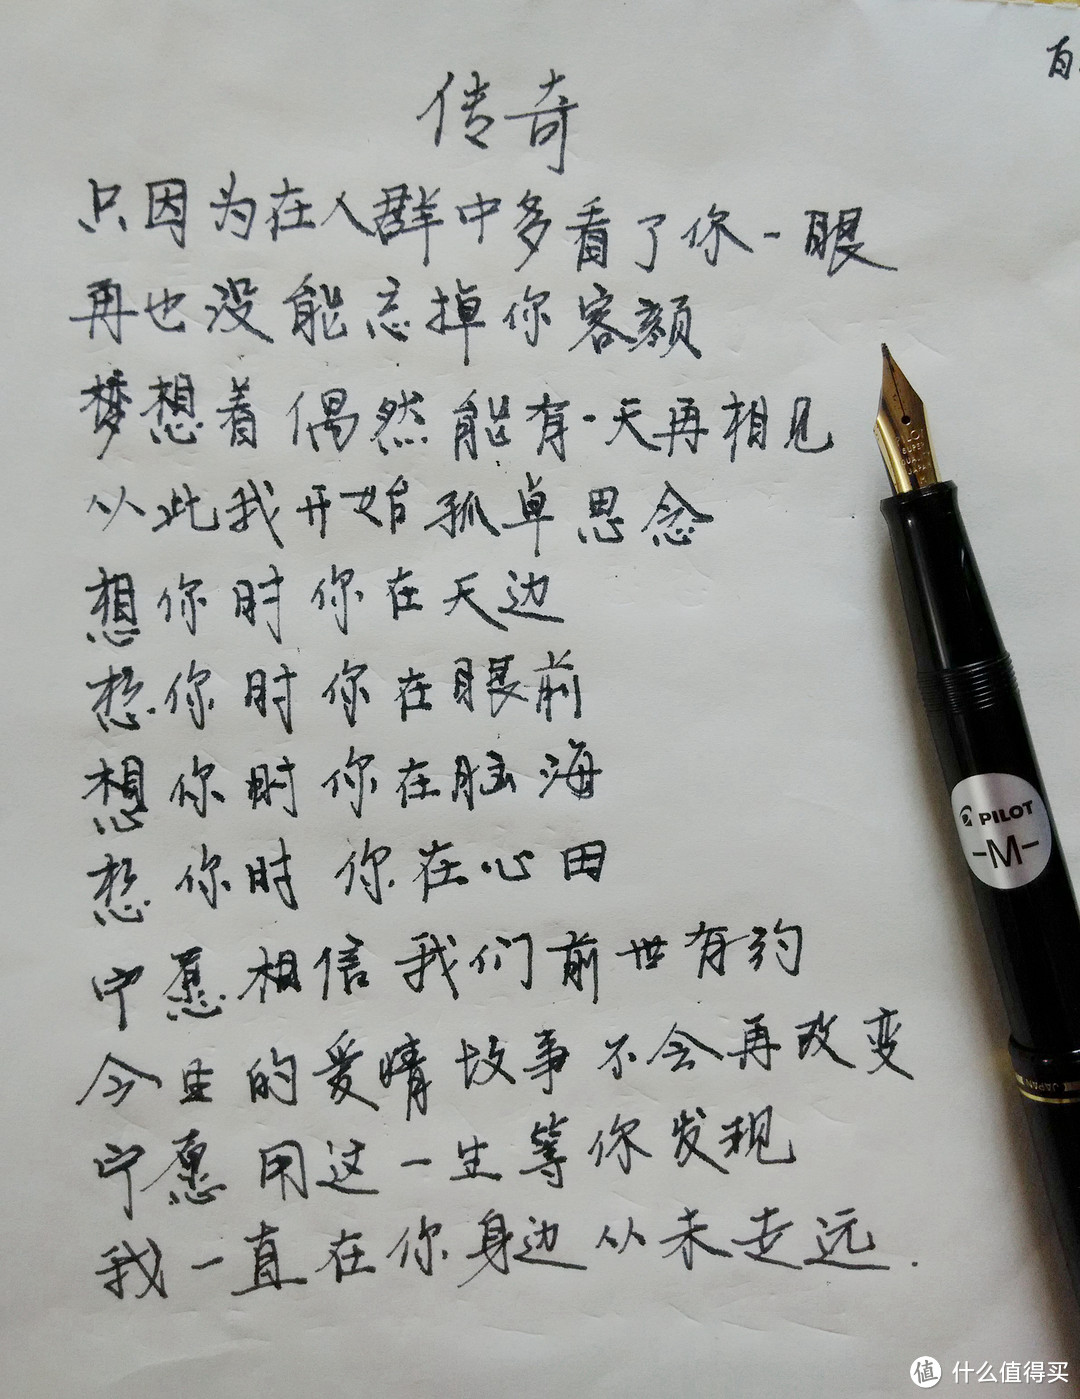 传奇
只因为在人群中多看了你一眼
再也没能忘掉你容颜
梦想着偶然能有一天再相见
从此我开始孤单思念
想你时你在天边
想你时你在眼前
想你时你在脑海
想你时你在心田
宁愿相信我们前世有约
今生的爱情故事不会再改变
宁愿用这一生等你发现
我一直在你身边从未走远.
PILOT
SUPER
QUALITY
JAPAN
PILOT
-M-
JAPAN
值 什么值得买